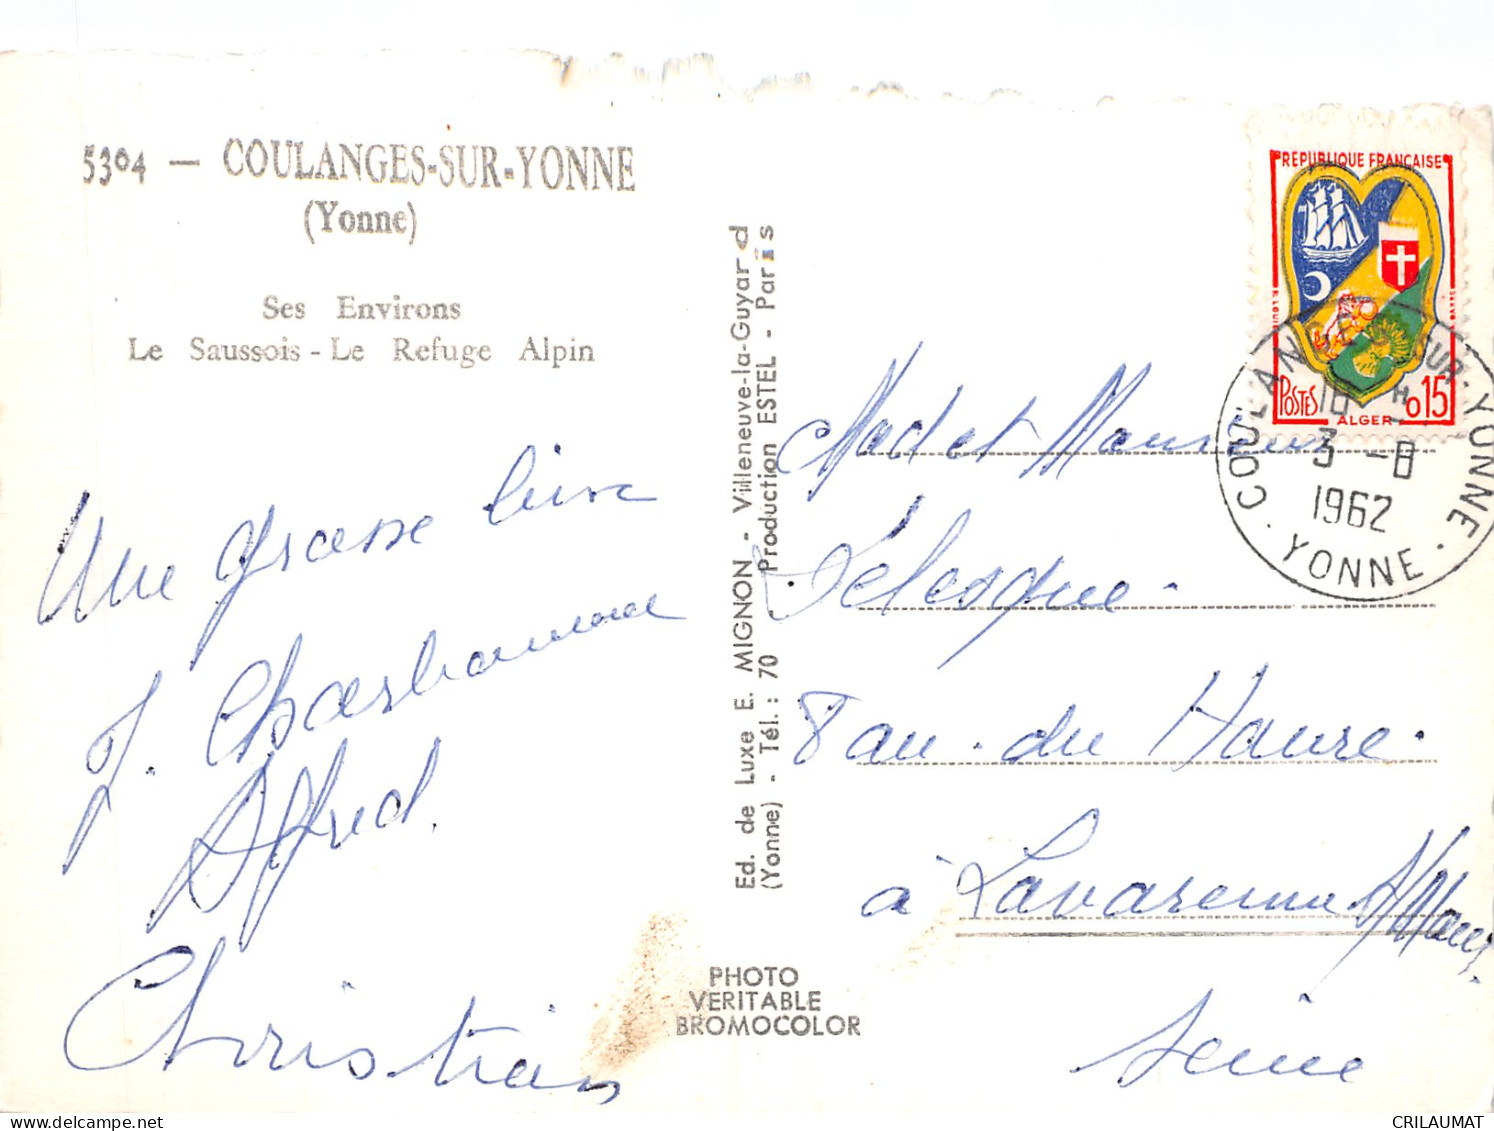 5304 — COULANGES-SUR-YONNE
(Yonne)
Ses Environs
Le Saussois - Le Refuge Alpin
Une grosse bise
J. Charbonneau
Alfred.
Christian
Ed. de Luxe E. MIGNON - Villeneuve-la-Guyard
(Yonne) - Tél. : 70 Production ESTEL - Paris
PHOTO
VERITABLE
BROMOCOLOR
REPUBLIQUE FRANÇAISE
POSTES 0,15
ALGER
COULANGES SUR YONNE
18 H
3 - 8
1962
YONNE
Mad et Monsieur
Délesque
8 av. du Havre.
à Lavarenne
Seine
CRILAUMAT